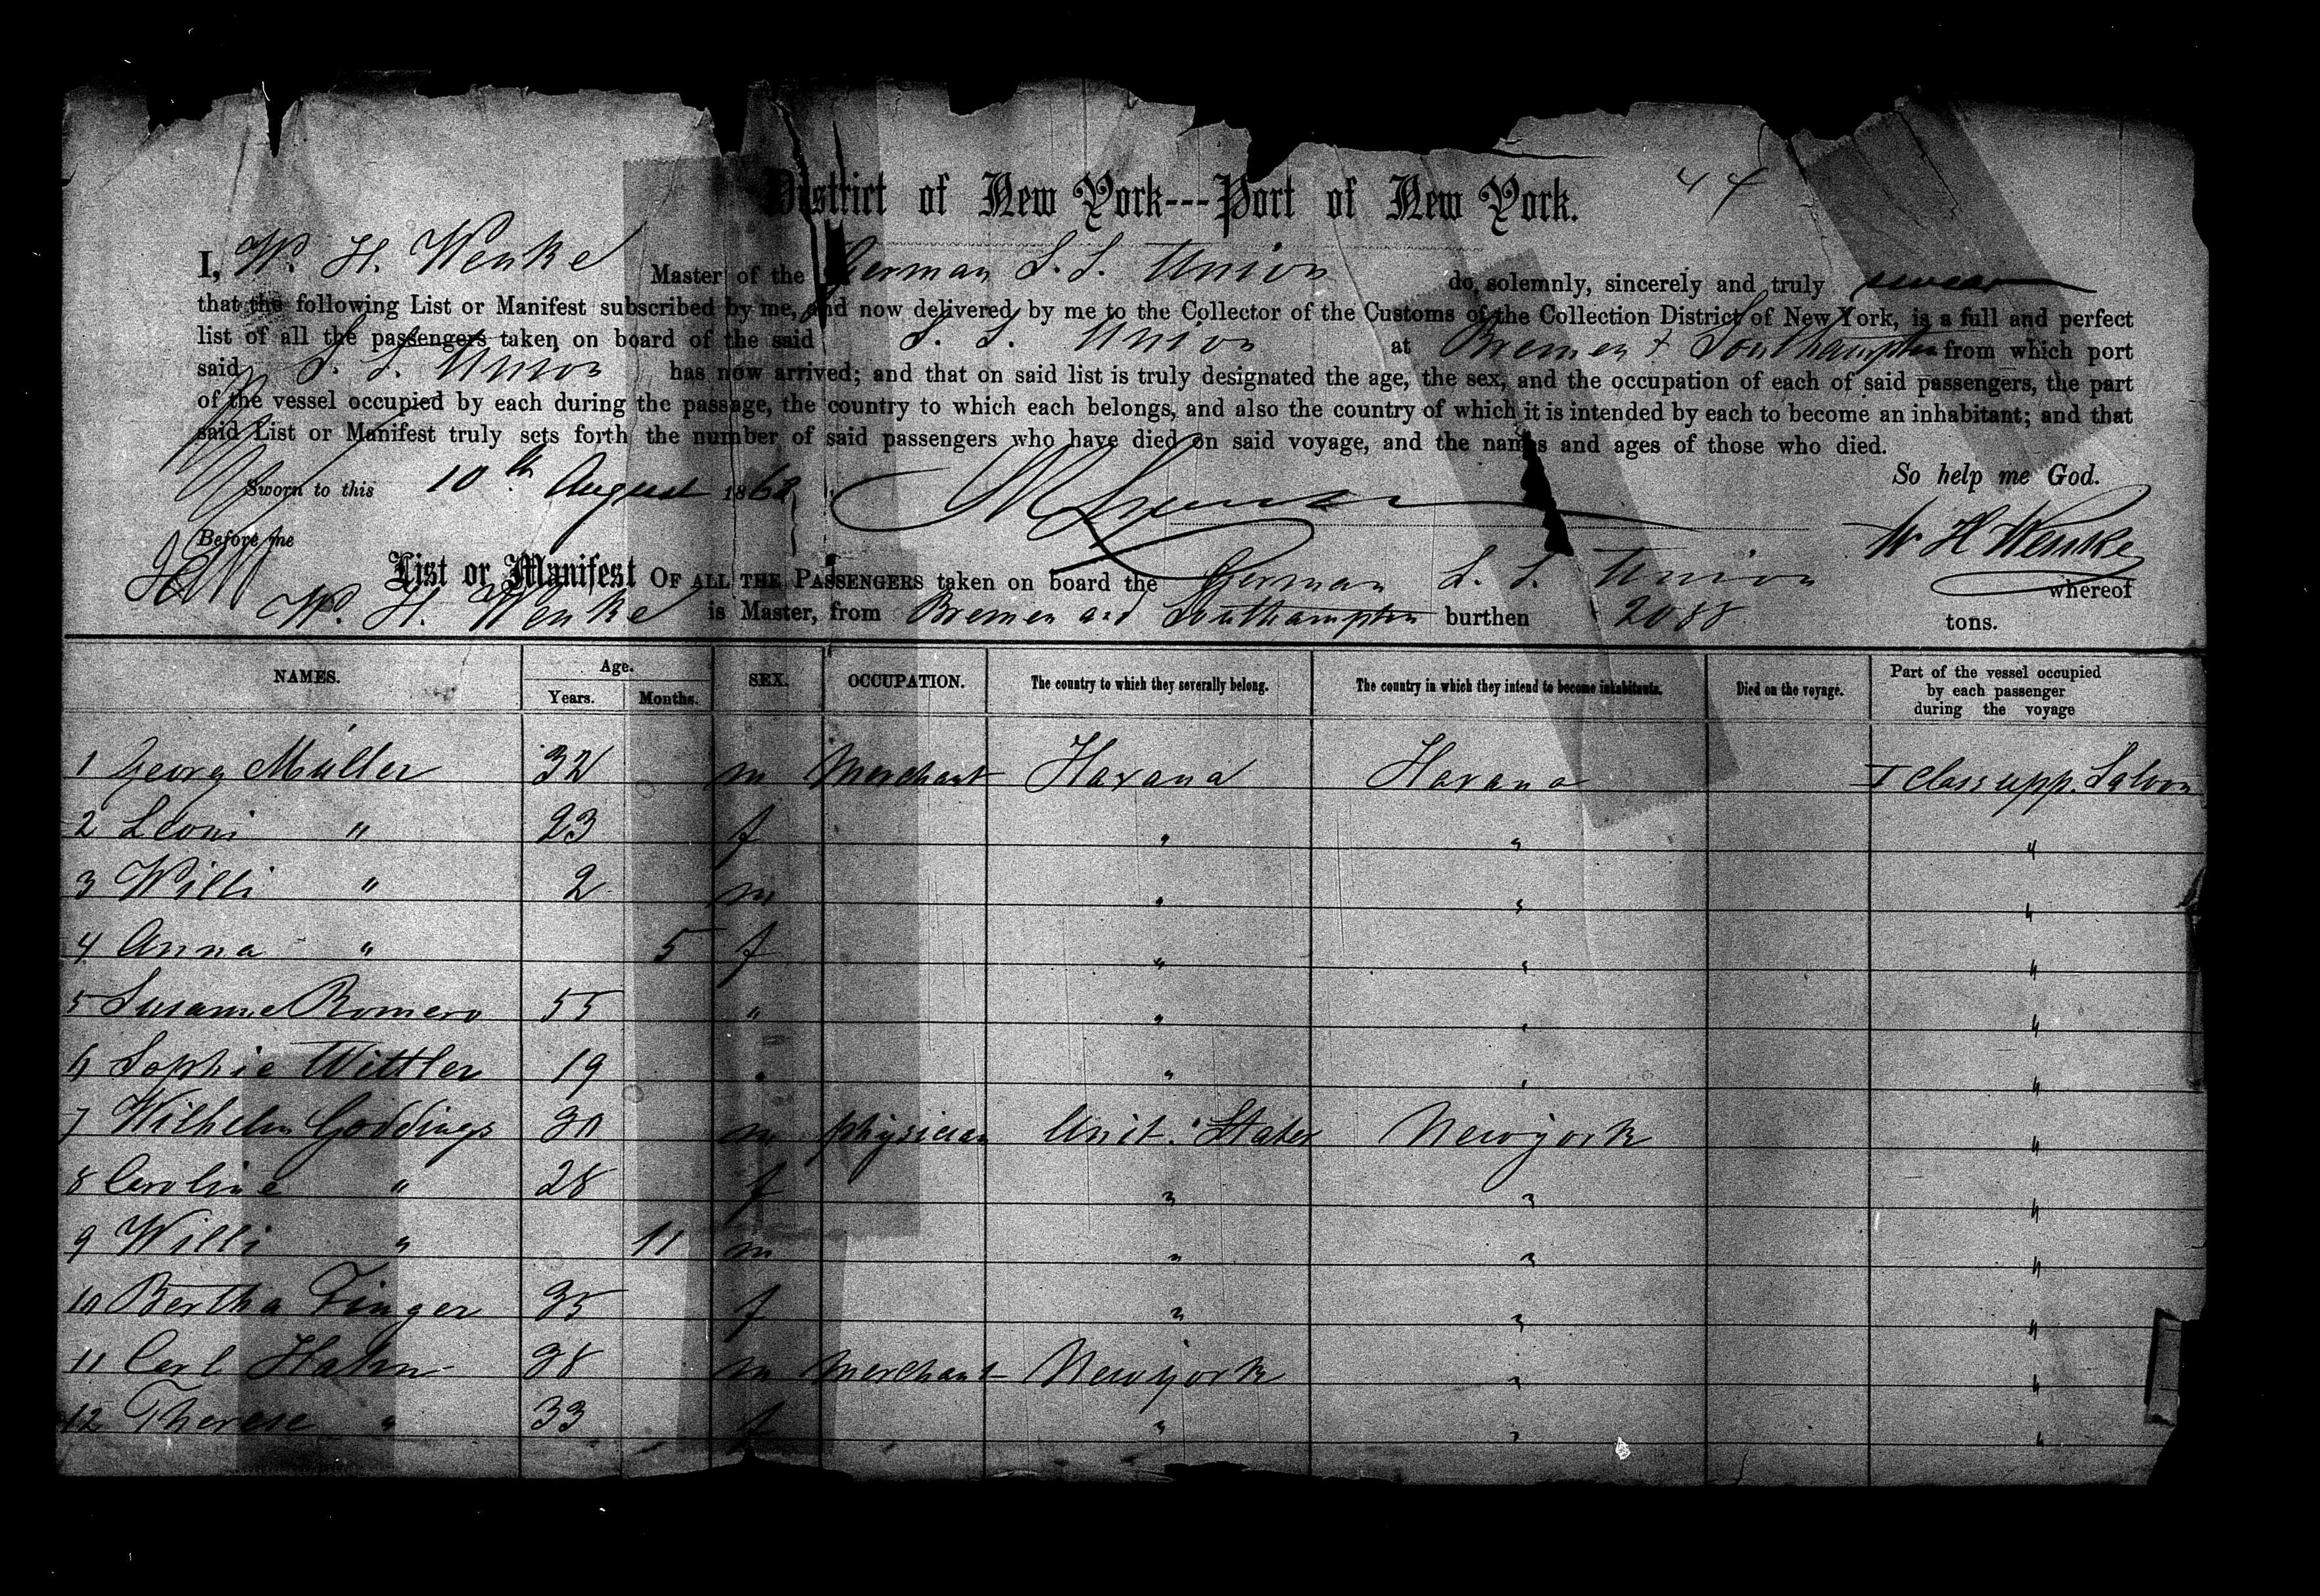 44
District of New York---Port of New York.
I, W. H. Wenke Master of the German S. S. Union do, solemnly, sincerely and truly swear
that the following List or Manifest subscribed by me, and now delivered by me to the Collector of the Customs of the Collection District of New York, is a full and perfect
list of all the passengers taken on board of the said S. S. Union at Bremen & Southampton from which port
said S. S. Union has now arrived; and that on said list is truly designated the age, the sex, and the occupation of each of said passengers, the part
of the vessel occupied by each during the passage, the country to which each belongs, and also the country of which it is intended by each to become an inhabitant; and that
said List or Manifest truly sets forth the number of said passengers who have died on said voyage, and the names and ages of those who died.
So help me God.
Sworn to this 10th August 1868
W H Wenke
Before me
List or Manifest OF ALL THE PASSENGERS taken on board the German S. S. Union whereof
W. H. Wenke is Master, from Bremen and Southampton burthen 2088 tons.
NAMES. Age. Years. Months. SEX. OCCUPATION. The country to which they severally belong. The country in which they intend to become inhabitants. Died on the voyage. Part of the vessel occupied by each passenger during the voyage
1 Georg Müller 32 m Merchant Havana Havana I Class upp. Saloon
2 Leoni " 23 f " " "
3 Willi " 2 m " " "
4 Anna " 5 f " " "
5 Susanne Romero 55 " " " "
6 Sophie Wittler 19 " " " "
7 Wilhelm Goddings 30 m physician Unit. States Newyork "
8 Caroline " 28 f " " "
9 Willi " 11 m " " "
10 Bertha Finger 35 f " " "
11 Carl Hahn 38 m Merchant Newyork " "
12 Therese " 33 f " " "